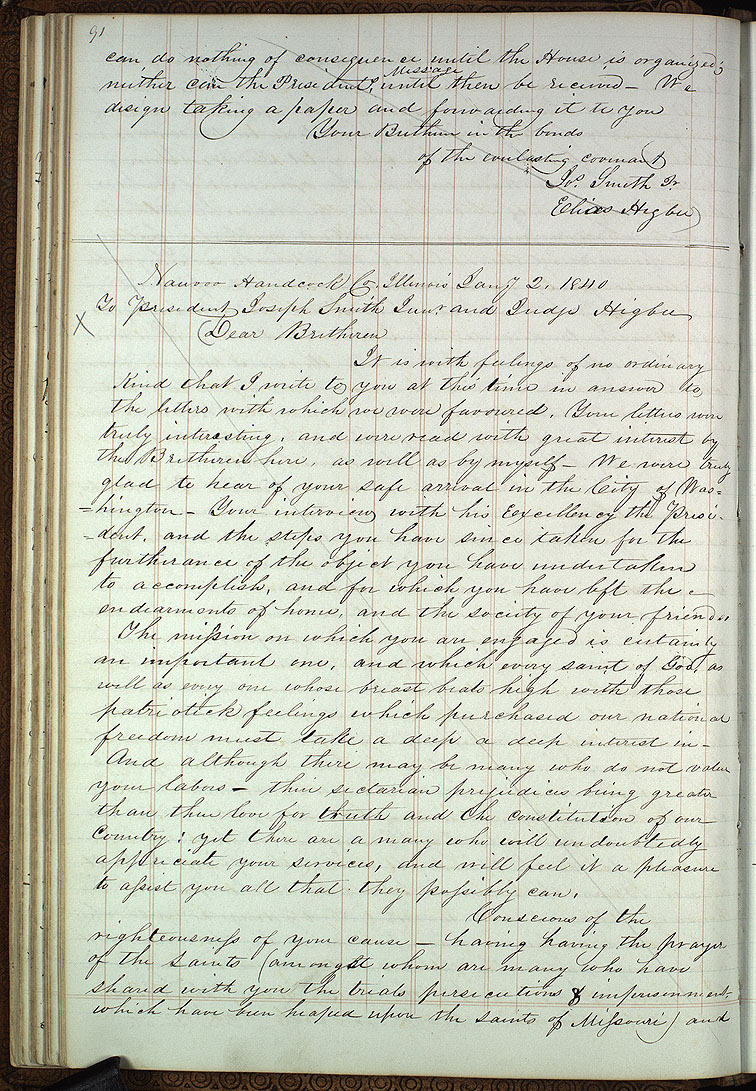 91
can do nothing of consequence until the House is organized;
neither can the President's Message until then be received — We
design taking a paper and forwarding it to you
Your Brethren in the bonds
of the everlasting covenant
Jos. Smith Jr
Elias Higbee
Nauvoo Handcock Co, Illinois Jany 2, 1840
X
To President Joseph Smith Junr and Judge Higbee
Dear Brethren
It is with feelings of no ordinary
kind that I write to you at this time in answer to
the letters with which we were favoured. Your letters were
truly interesting, and were read with great interest by
the Bretheren here, as well as by myself — We were truly
glad to hear of your safe arrival in the City of Was=
=hington — Your interview with his Excellency the Presi-
=dent, and the steps you have since taken for the
furtherance of the object you have undertaken
to accomplish, and for which you have left the e-
ndearments of home, and the society of your friends
The mission on which you are engaged is certainly
an important one, and which every saint of God, as
well as every one whose breast beats high with those
patriotick feelings which purchased our national
freedom must take a deep a deep interest in —
And although there may be many who do not value
your labors — their sectarian prejudices being greater
than their love for truth and the constitution of our
Country; yet there are a many who will undoubtedly
appreciate your services, and will feel it a pleasure
to assist you all that they possibly can.
Conscious of the
righteousness of your cause — having having the prayer
of the saints (amongst whom are many who have
shared with you the trials persecutions & imprisonment
which have been heaped upon the saints of Missouri) and